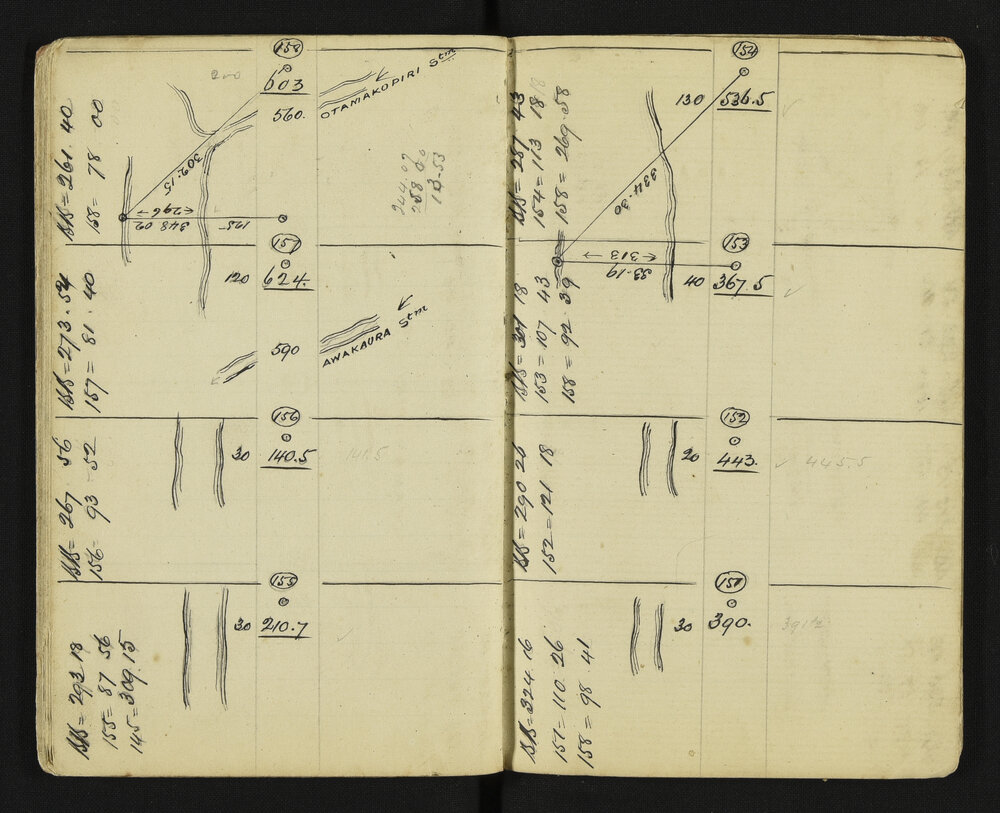 158
200
603
560.
OTAMAKOPIRI Stm
302.15
←296→
348 02
125
BB = 261. 40
158 = 78 00
244.07
258 00
13.53
157
120
624.
590
AWAKAURA Stm
BB = 273.54
157 = 81.40
156
30
140.5
141.5
BB = 267 56
156 = 93 52
155
30
210.7
BB = 293 18
155 = 87 56
145 = 309.15
154
130
536.5
334.30
BB = 287 43
154 = 113 18
158 = 269.58
153
←313→
33.19
40
367.5
BB = 301 18
153 = 107 43
158 = 92.39
152
20
443.
445.5
BB = 290 26
152 = 121 18
151
30
390.
391½
BB = 324 16
151 = 110 26
158 = 98 41